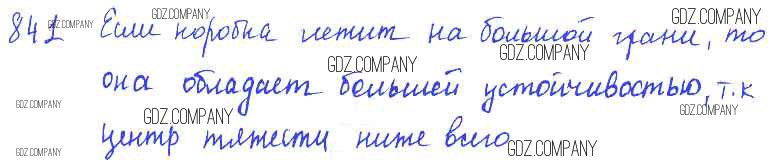 841 Если коробка лежит на большой грани, то
она обладает большей устойчивостью, т.к
центр тяжести ниже всего
GDZ.COMPANY
GDZ.COMPANY
GDZ.COMPANY
GDZ.COMPANY
GDZ.COMPANY
GDZ.COMPANY
GDZ.COMPANY
GDZ.COMPANY
GDZ.COMPANY
GDZ.COMPANY